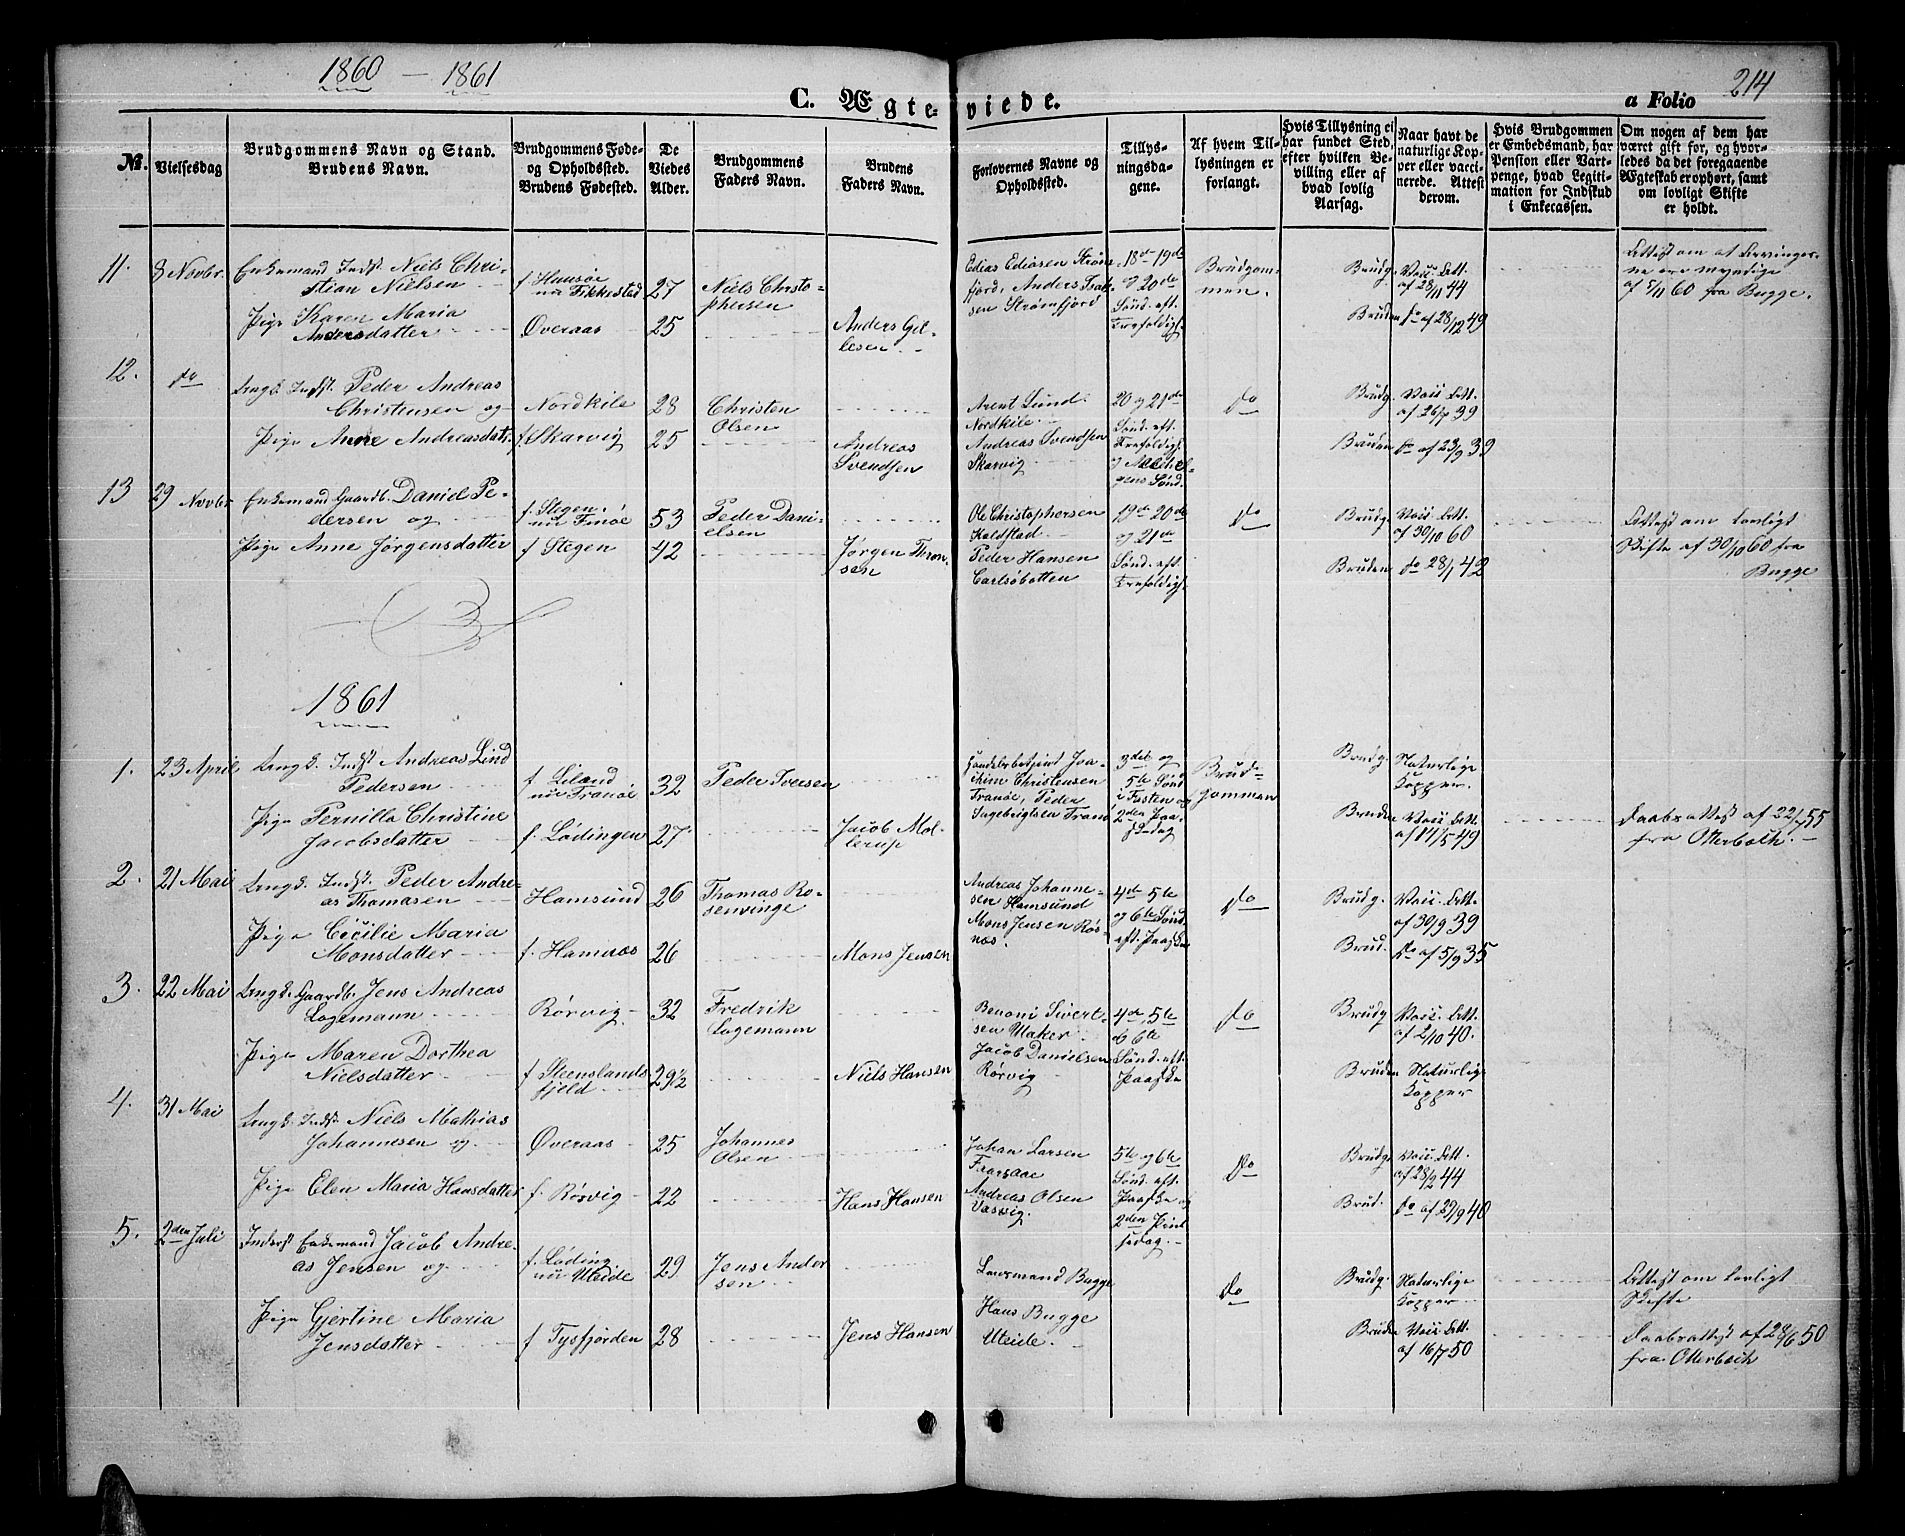 1860 - 1861
C. Ægteviede.
a Folio 214
No.
Vielsesdag
Brudgommens Navn og Stand.
Brudens Navn.
Brudgommens Føde- og Opholdssted.
Brudens Fødested.
De Viedes Alder.
Brudgommens Faders Navn.
Brudens Faders Navn.
Forlovernes Navne og Opholdsted.
Tillysningsdagene.
Af hvem Tillysningen er forlangt.
Hvis Tillysning ei har fundet Sted, efter hvilken Bevilling eller af hvad lovlig Aarsag.
Naar havt de naturlige Kopper eller vaccinerede. Attest derom.
Hvis Brudgommen er Embedsmand, har Pension eller Vartpenge, hvad Legitimation for Indskud i Enkecassen.
Om nogen af dem har været gift for, og hvorledes da det foregaaende Ægteskab er ophørt, samt om lovligt Skifte er holdt.
11. 8 Novbr. Enkemand Indst. Niels Christian Nielsen f Hansøe nu Fikkestad 27 Niels Christophersen
Pige Karen Maria Andersdatter Øveraas 25 Anders Gillesen
Edias Ediasen Strømfjord, Anders Isaksen Strømfjord
18de 19de og 20de Sønd. eft. Trefoldigh.
Brudgommen.
Brudg. Vaii. Att. af 28/11 44
Bruden do af 28/12 49
Attest om at Arvingerne ere myndige af 5/11 60 fra Bugge.
12. do Ungk. Indst. Peder Andreas Christensen og Nordkile 28 Christen Olsen
Pige Anne Andreasdatr. f. Skarvig 25 Andreas Svendsen
Arent Lund Nordkile.
Andreas Svendsen Skarvig
20 og 21de Sønd. eft. Trefoldigh. og Allehelgens Sønd.
do
Brudg. Vaii. Att. af 26/7 39
Bruden do af 23/9 39
13 29 Novbr. Enkemand Gaardb. Daniel Pedersen og f. Stegen. nu Finøe 53 Peder Danielsen
Pige Anne Jørgensdatter f Stegen 42 Jørgen Thronsen
Ole Christophersen Kaldstad
Peder Hansen Carlsøbotten
19de 20de og 21de Sønd. eft. Trefoldigh.
do
Brudg. Vaii. Att. af 30/10 60
Bruden do 28/1 42
Attest om lovligt Skifte af 30/10 60 fra Bugge
1861
1. 23 April Ungk. Indst Andreas Lind Pedersen f. Liland nu Tranøe 32 Peder Iversen
Pige Pernilla Christine Jacobsdatter f. Lødingen 27 Jacob Mollerup
Handelsbetjent Joachim Christensen Tranøe, Peder Ingebrigtsen Tranø
3die og 5te Sønd i Fasten og 2den Paaskedag
Brudgommen
Brudg. Naturlige Kopper.
Bruden Vaii Att. af 11/5 49
Daabsattest af 22/7 55 fra Otterbech.
2. 21 Mai Ungk. Indst. Peder Andreas Thomasen Hamsund 26 Thomas Rosenvinge
Pige Cecilie Maria Monsdatter f. Hamnæs 26 Mons Jensen
Andreas Johannesen Hamsund
Mons Jensen Røsnæs.
4de 5te og 6te Sønd eft. Paaske
do
Brudg. Vaii. Att. af 30/9 39
Brud. do af 5/9 35
3. 22 Mai Ungk. Gaardb. Jens Andreas Logemann Rørvig 32 Fredrik Logemann
Pige Maren Dorthea Nielsdatter f Steenslandsfjeld 29 1/2 Niels Hansen
Benoni Sivertsen Utaker
Jacob Danielsen Rørvig
4de, 5te og 6te Sønd. eft. Paaske
do
Brudg Vaii. Att. af 2/10 40.
Bruden Naturlige Kopper
4. 31 Mai Ungk. Indst Niels Mathias Johannesen og Øveraas 25 Johannes Olsen
Pige Elen Maria Hansdatter f. Rørvig 22 Hans Hansen
Johan Larsen
Andreas Olsen Vasvig.
5te og 6te Sønd. eft. Paaske og 2den Pintsedag.
do
Brudg Vaii. Att. af 28/2 44
Brud. do af 29/9 40
5. 2den Juli Inderst Enkemand Jacob Andreas Jensen og f. Løding. nu Uteide 29 Jens Andersen
Pige Gjertine Maria Jensdatter f Tysfjorden 28 Jens Hansen
Lensmand Bugge
Hans Bugge Uteide.
do
Brudg. Naturlige Kopper
Bruden Vaii Att. af 16/7 50
Attest om lovligt Skifte
Daabsattest af 28/6 50 fra Otterbech